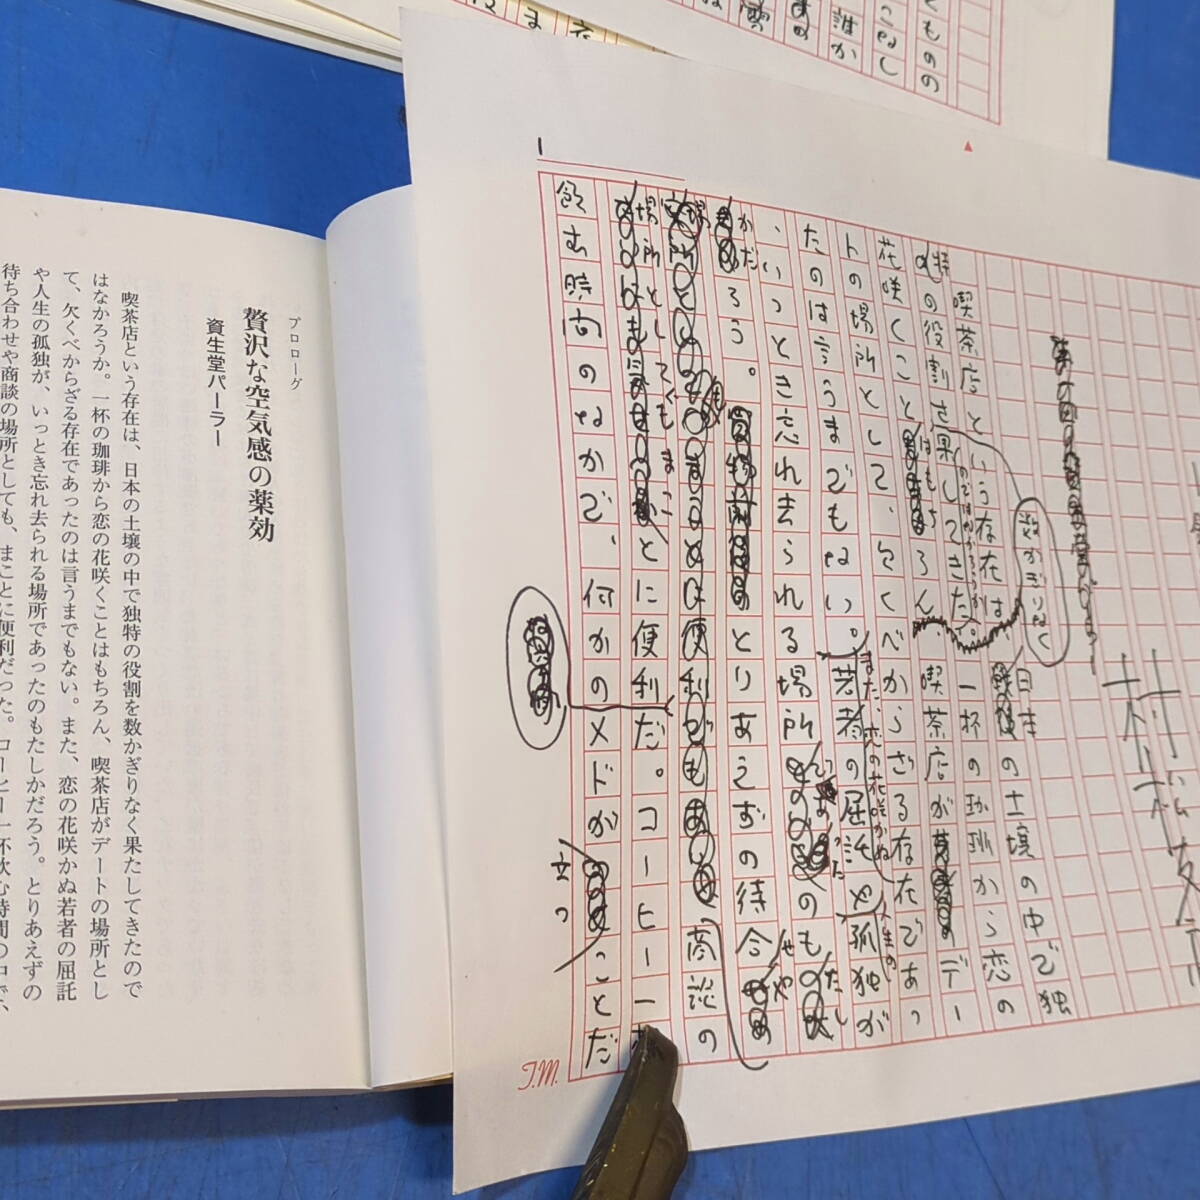 村松友視
数かぎりなく
喫茶店という存在は、日本の土壌の中で独
特の役割を果してきた。
のではなかろうか。
一杯の珈琲から恋の
花咲くこと
はもちろん、喫茶店が
デー
トの場所として、欠くべからざる存在であっ
たのは言うまでもない。
また、恋の花咲かぬ
若者の屈託や
人生の
孤独が
、いっとき忘れ去られる場所
のも
たし
かだ
ろう。
とりあえずの待合
せや
商談の
場所としてもまこ
とに便利だ。コーヒー一
飲む時間のなかで、何かのメドが
立つ
ことだ
1
T.M.
プロローグ
贅沢な空気感の薬効
資生堂パーラー
喫茶店という存在は、日本の土壌の中で独特の役割を数かぎりなく果たしてきたので
はなかろうか。一杯の珈琲から恋の花咲くことはもちろん、喫茶店がデートの場所とし
て、欠くべからざる存在であったのは言うまでもない。また、恋の花咲かぬ若者の屈託
や人生の孤独が、いっとき忘れ去られる場所であったのもたしかだろう。とりあえずの
待ち合わせや商談の場所としても、まことに便利だった。コーヒー一杯飲む時間の中で、